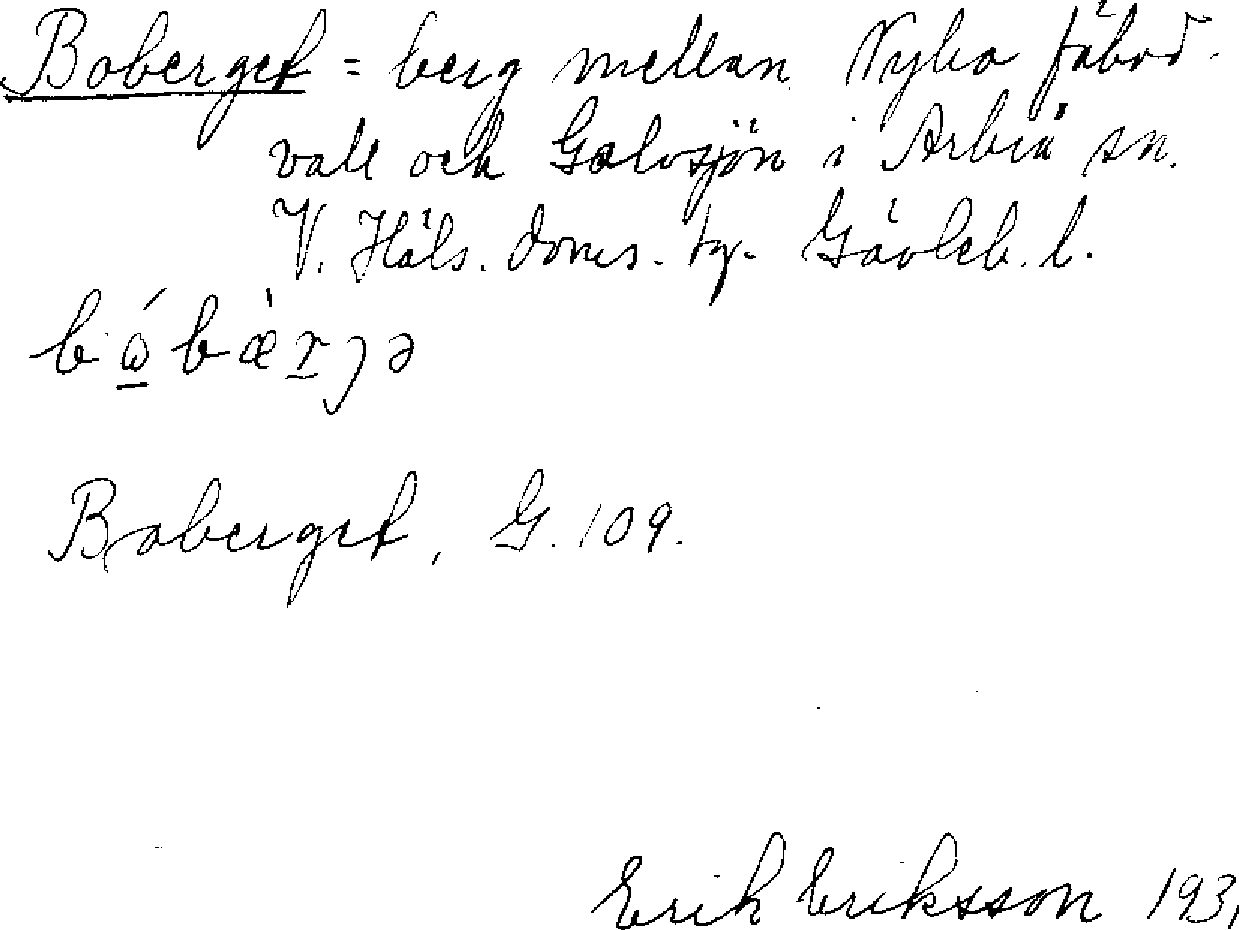 Boberget = berg mellan Nybo fäbod-
vall och Galvsjön i Arbrå sn.
V. Häls. doms. tg. Gävleb. l.
bǿbærjə
Boberget, G. 109.
Erik Eriksson 193